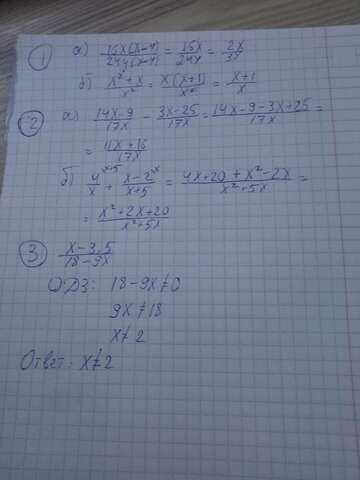 1 а) 16x(x-y)/24y(x-y) = 16x/24y = 2x/3y
б) x²+x/x² = x(x+1)/x² = x+1/x
2 а) 14x-9/17x - 3x-25/17x = 14x-9-3x+25/17x =
= 11x+16/17x
б) 4/x ^x+5 + x-2/x+5 ^x = 4x+20+x²-2x/x²+5x =
= x²+2x+20/x²+5x
3. x-3,5/18-9x
ОДЗ: 18-9x≠0
9x≠18
x≠2
Ответ: x≠2